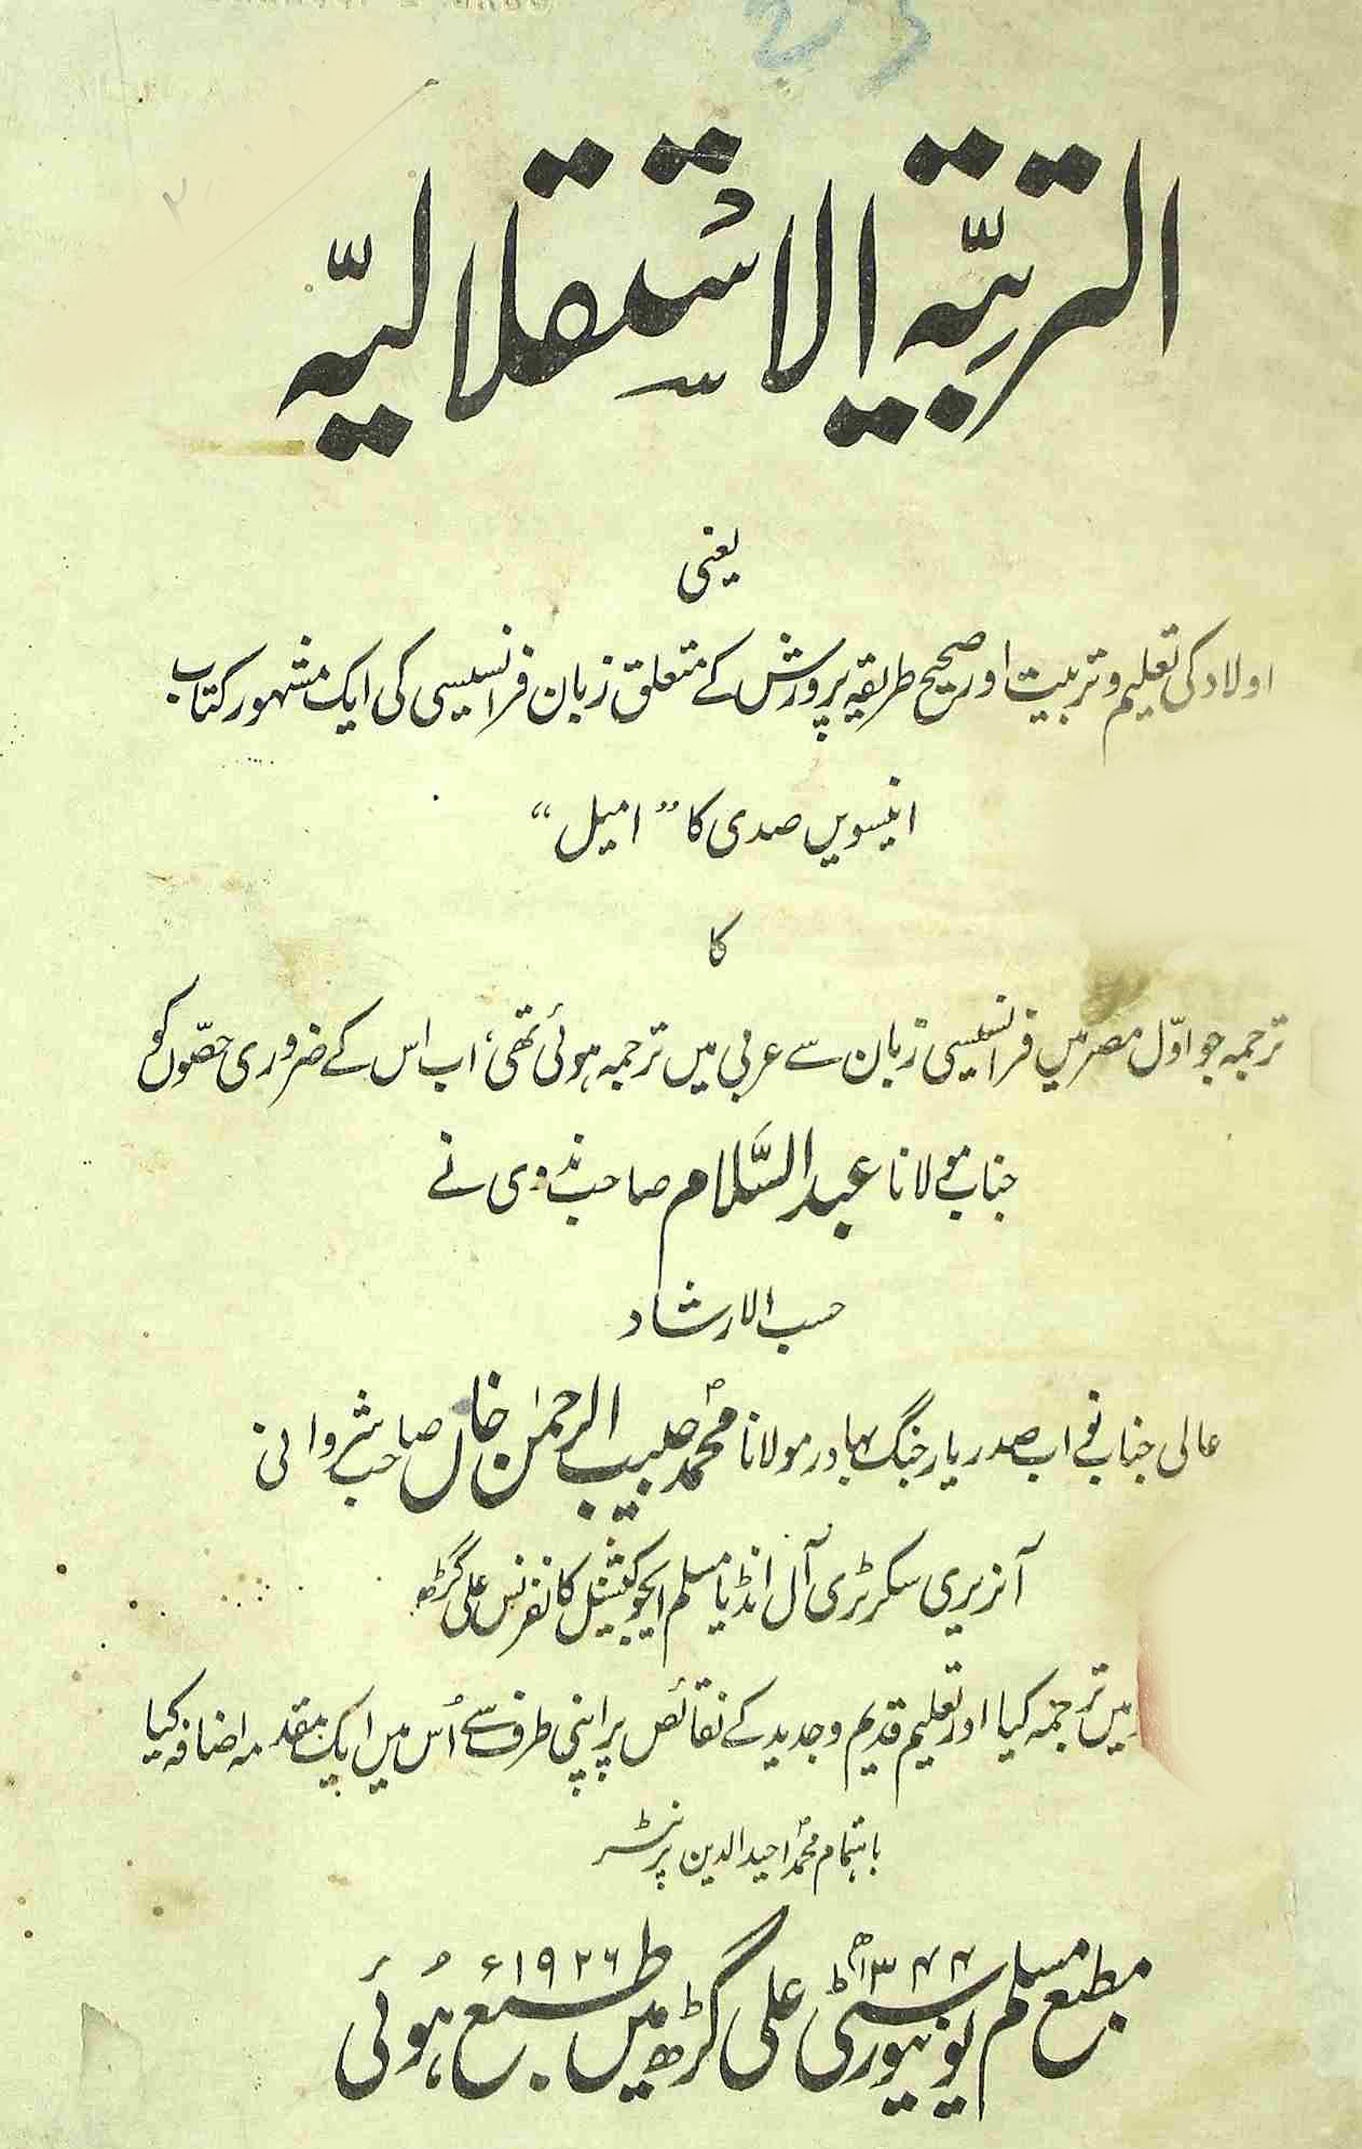 التربیّۃ الاستقلالیّہ
یعنی
اولاد کی تعلیم و تربیت اور صحیح طریقہ پرورش کے متعلق زبان فرانسیسی کی ایک مشہور کتاب
انیسویں صدی کا ”امیل“
کا
ترجمہ جو اوّل مصر میں فرانسیسی زبان سے عربی میں ترجمہ ہوئی تھی، اب اس کے ضروری حصّوں کو
جناب مولانا عبدالسَّلام صاحب ندوی نے
حسب الارشاد
عالی جناب نواب صدر یار جنگ بہادر مولانا محمد حبیب الرحمٰن خاں صاحب شروانی
آنریری سکرٹری آل انڈیا مسلم ایجوکیشنل کانفرنس علی گڑھ
میں ترجمہ کیا اور تعلیم قدیم و جدید کے نقائص پر اپنی طرف سے اُس میں ایک مقدمہ اضافہ کیا
باہتمام محمد احید الدین پرنٹر
مطبع مسلم یونیورسٹی علی گڑھ میں طبع ہُوئی
۱۳۴۴ھ ۱۹۲۶ء